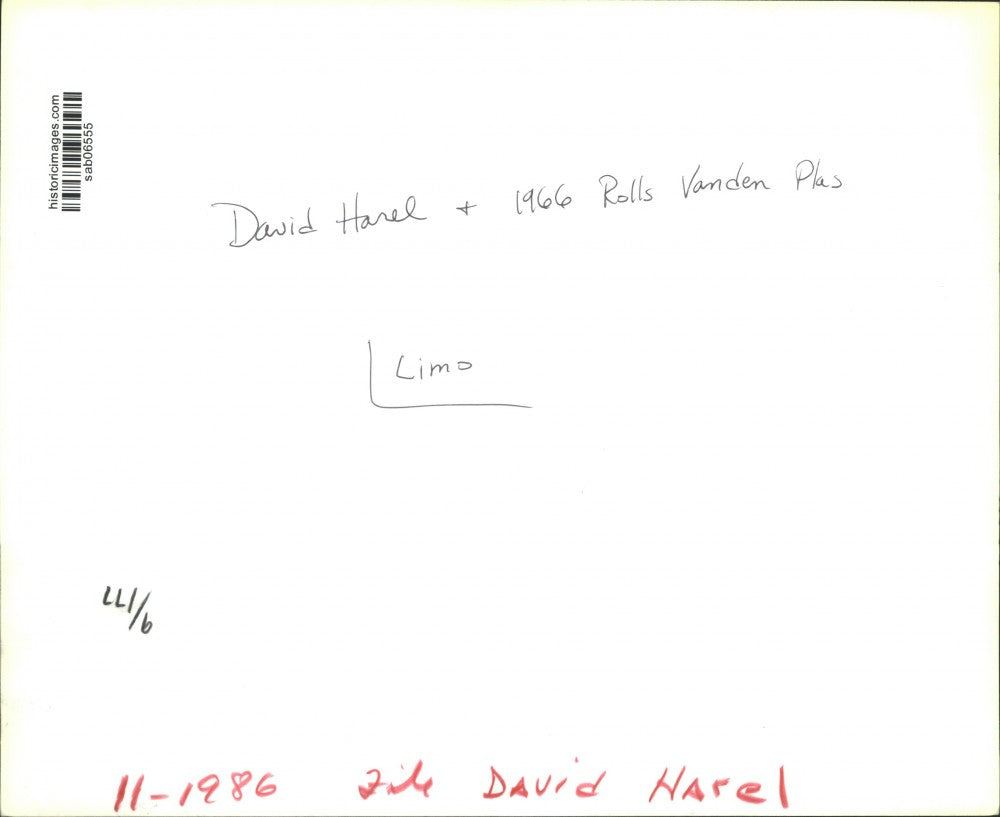 historicimages.com
sab06555
David Harel + 1966 Rolls Vanden Plas
Limo
11-1986 File David Harel